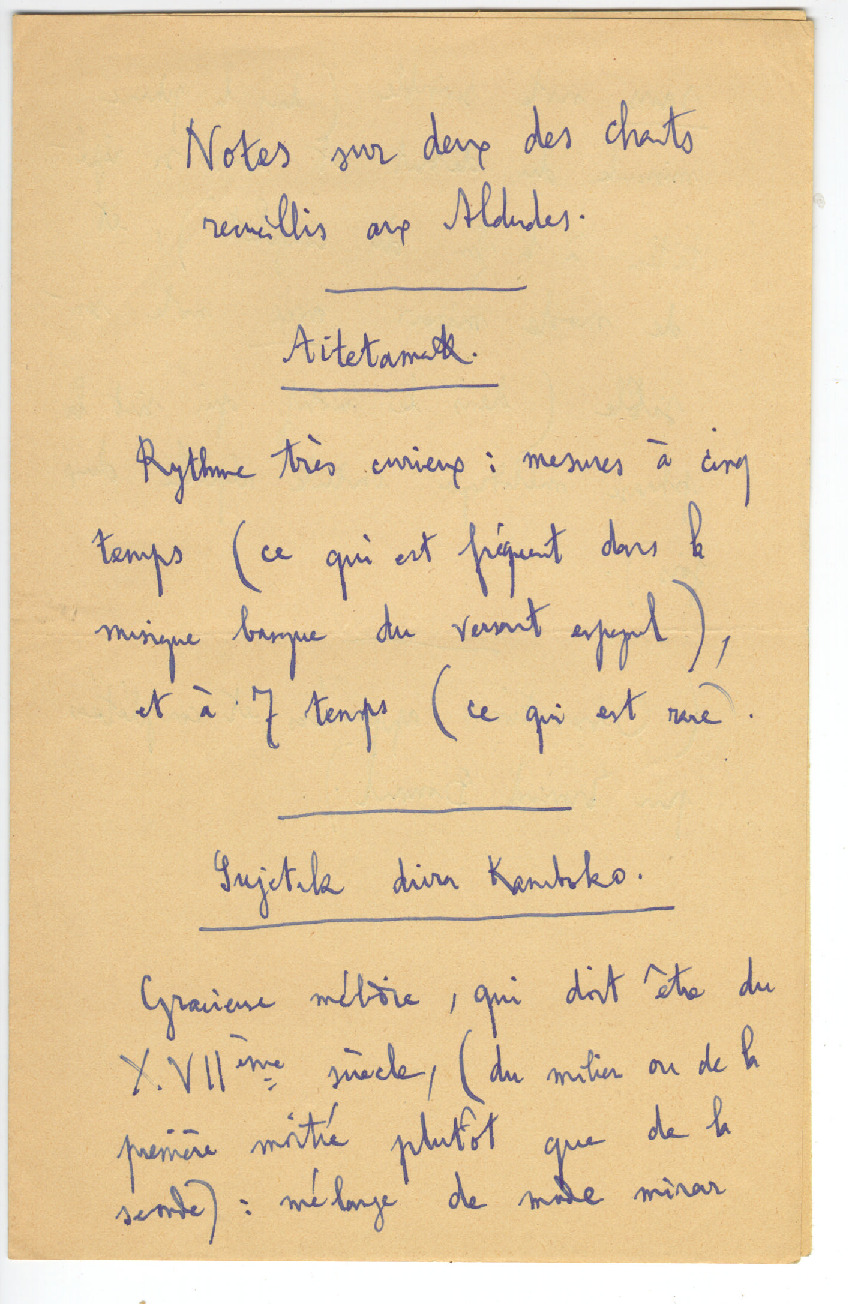 Notes sur deux des chants
recueillis aux Aldudes.
Aitetamak.
Rythme très curieux : mesures à cinq
temps (ce qui est fréquent dans la
musique basque du versant espagnol),
et à 7 temps (ce qui est rare).
Sujetik dira Kanboko.
Gracieuse mélodie, qui doit être du
XVIIème siècle, (du milieu ou de la
première moitié plutôt que de la
seconde) : mélange de mode mineur